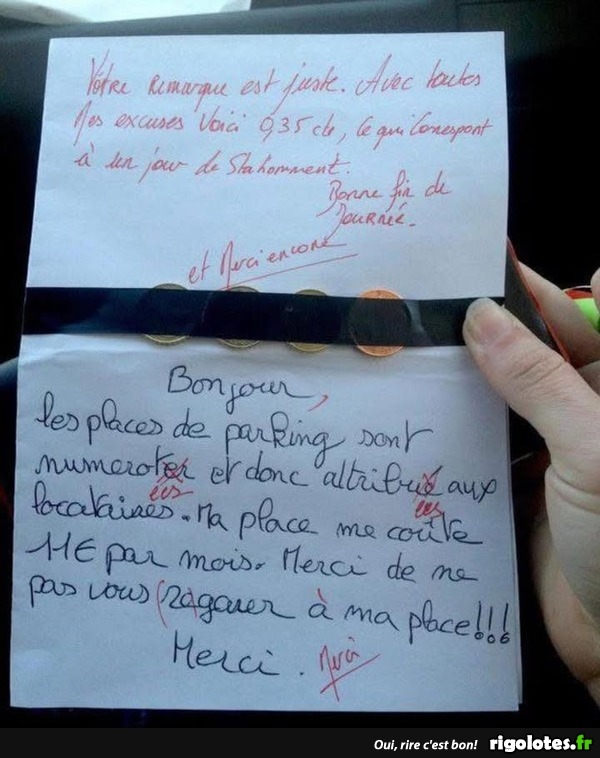 Votre remarque est juste. Avec toutes
Mes excuses Voici 0,35 cts, Ce qui Correspont
à un jour de Stationnment.
Bonne fin de
Journée.
et Merci encore
Bonjour,
les places de parking sont
numeroter et donc attribué aux
ées
locataires. Ma place me coûte
ées
11€ par mois. Merci de ne
pas vous (ra)garer à ma place!!!
Merci. Merci
Oui, rire c'est bon! rigolotes.fr